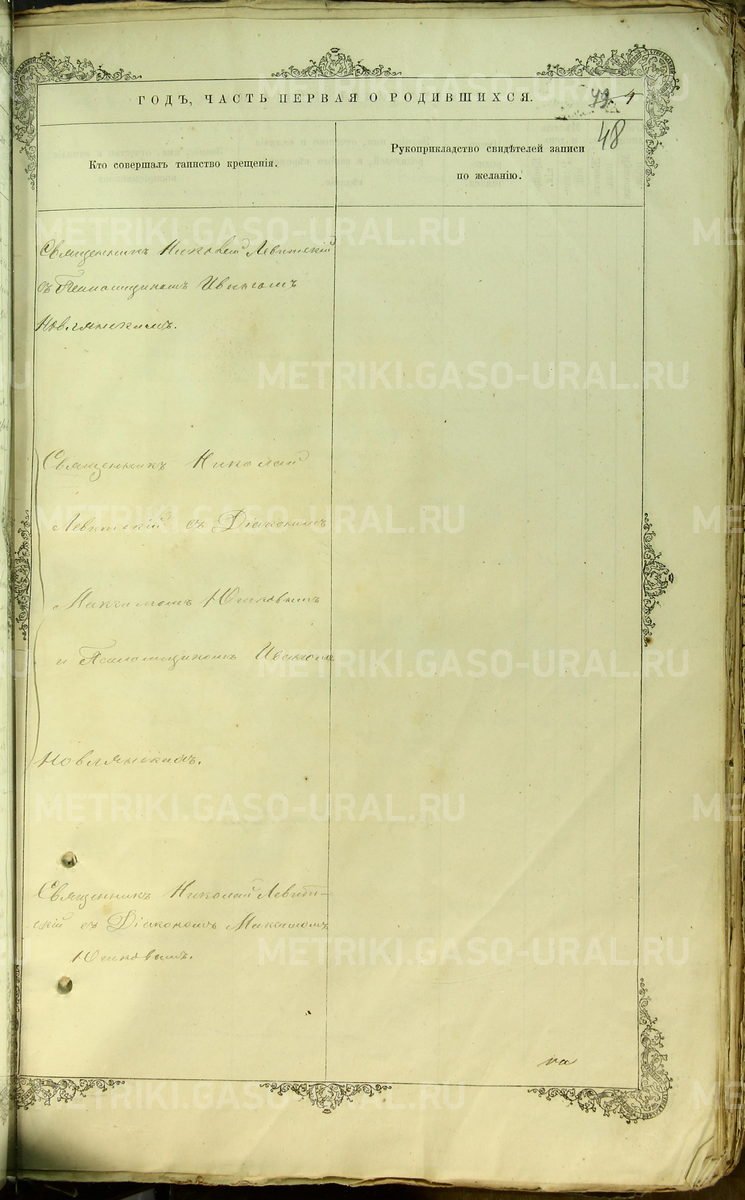 ГОДЪ, ЧАСТЬ ПЕРВАЯ О РОДИВШИХСЯ.
48
Кто совершалъ таинство крещенія.
Рукоприкладство свидѣтелей записи
по желанію.
Священникъ Николай Левитскій
съ Псаломщикомъ Иваномъ
Новлянскимъ.
Священникъ Николай
Левитскій съ Діакономъ
Максимомъ Юшковымъ
и Псаломщикомъ Иваномъ
Новлянскимъ.
Священникъ Николай Левит-
скій съ Діакономъ Максимомъ
Юшковымъ.
на
METRIKI.GASO-URAL.RU